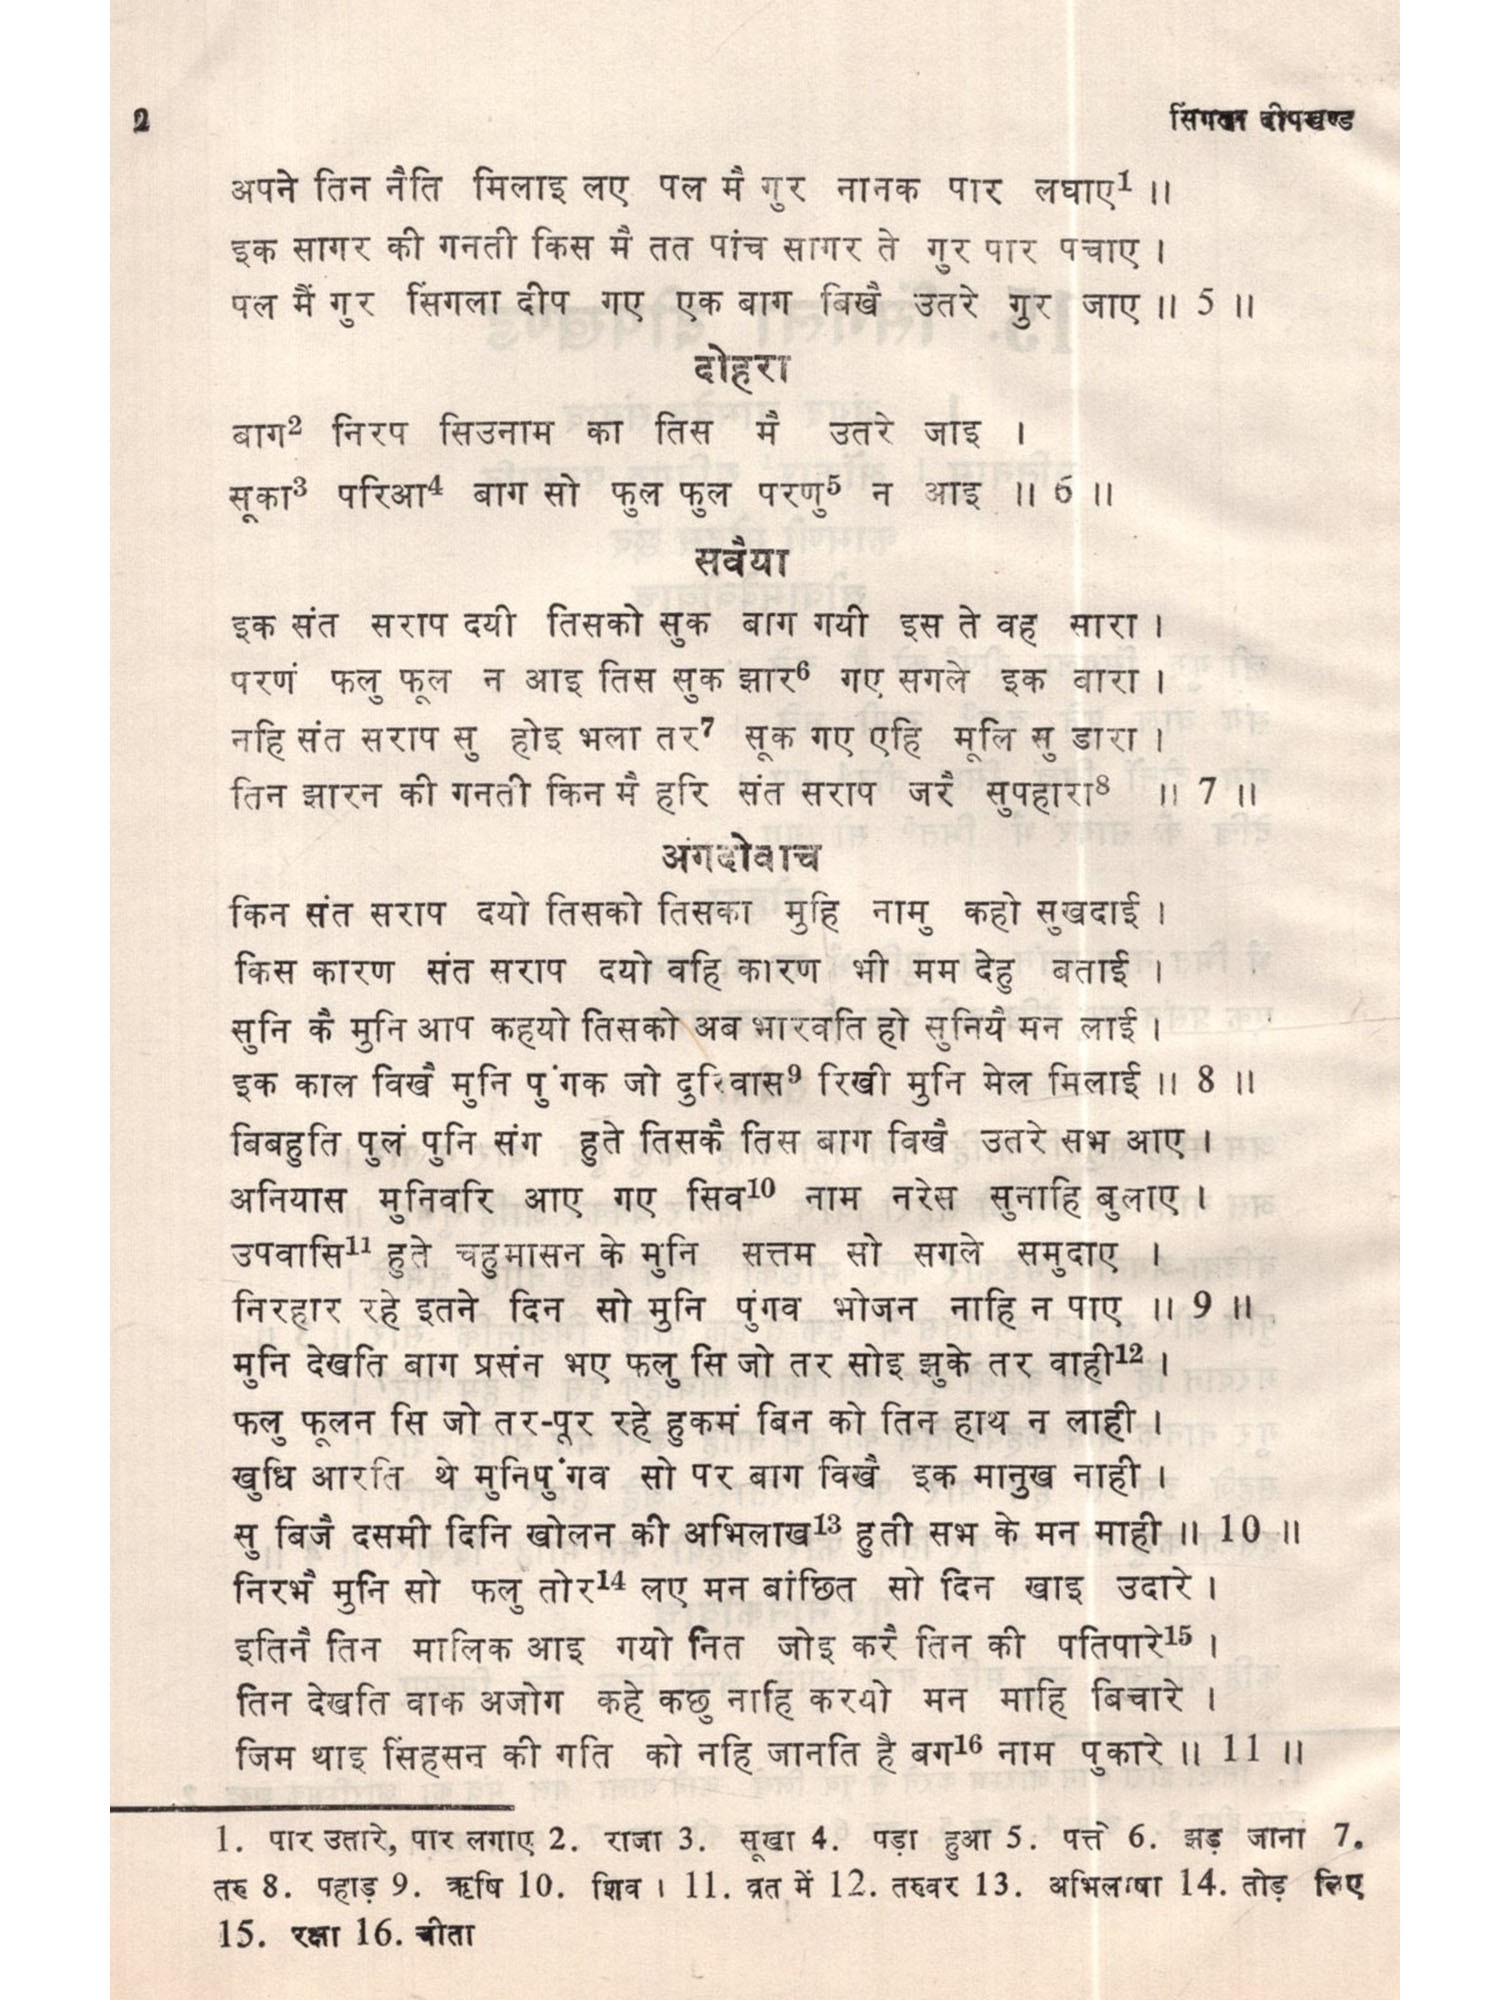 2 सिंगला दीपखण्ड
अपने तिन नैति मिलाइ लए पल मै गुर नानक पार लघाए¹ ।।
इक सागर की गनती किस मै तत पांच सागर ते गुर पार पचाए ।
पल मैं गुर सिंगला दीप गए एक बाग बिखै उतरे गुर जाए ।। 5 ।।
दोहरा
बाग² निरप सिउनाम का तिस मै उतरे जाइ ।
सूका³ परिआ⁴ बाग सो फुल फुल परणु⁵ न आइ ।। 6 ।।
सवैया
इक संत सराप दयी तिसको सुक बाग गयी इस ते वह सारा ।
परणं फलु फूल न आइ तिस सुक झार⁶ गए सगले इक वारा ।
नहि संत सराप सु होइ भला तर⁷ सूक गए एहि मूलि सु डारा ।
तिन झारन की गनती किन मै हरि संत सराप जरै सुपहारा⁸ ।। 7 ।।
अंगदोवाच
किन संत सराप दयो तिसको तिसका मुहि नामु कहो सुखदाई ।
किस कारण संत सराप दयो वहि कारण भी मम देहु बताई ।
सुनि कै मुनि आप कहयो तिसको अब भारवति हो सुनियै मन लाई ।
इक काल विखै मुनि पुंगक जो दुरिवास⁹ रिखी मुनि मेल मिलाई ।। 8 ।।
बिबहुति पुलं पुनि संग हुते तिसकै तिस बाग विखै उतरे सभ आए ।
अनियास मुनिवरि आए गए सिव¹⁰ नाम नरेस सुनाहि बुलाए ।
उपवासि¹¹ हुते चहुमासन के मुनि सत्तम सो सगले समुदाए ।
निरहार रहे इतने दिन सो मुनि पुंगव भोजन नाहि न पाए ।। 9 ।।
मुनि देखति बाग प्रसंन भए फलु सि जो तर सोइ झुके तर वाही¹² ।
फलु फूलन सि जो तर-पूर रहे हुकमं बिन को तिन हाथ न लाही ।
खुधि आरति थे मुनिपुंगव सो पर बाग विखै इक मानुख नाही ।
सु बिजै दसमी दिनि खोलन की अभिलाख¹³ हुती सभ के मन माही ।। 10 ।।
निरभै मुनि सो फलु तोर¹⁴ लए मन बांछित सो दिन खाइ उदारे ।
इतिनै तिन मालिक आइ गयो नित जोइ करै तिन की पतिपारे¹⁵ ।
तिन देखति वाक अजोग कहे कछु नाहि करयो मन माहि बिचारे ।
जिम थाइ सिंहसन की गति को नहि जानति है बग¹⁶ नाम पुकारे ।। 11 ।।
1. पार उतारे, पार लगाए 2. राजा 3. सूखा 4. पड़ा हुआ 5. पत्ते 6. झड़ जाना 7.
तरु 8. पहाड़ 9. ऋषि 10. शिव । 11. व्रत में 12. तरुवर 13. अभिलाषा 14. तोड़ लिए
15. रक्षा 16. चीता